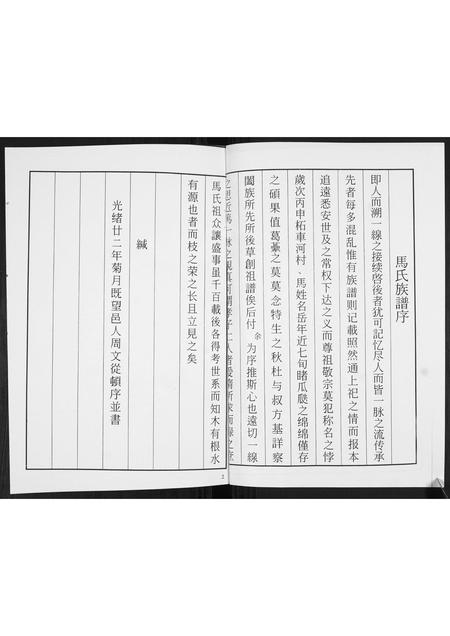 馬氏族譜序
即人而溯一線之接续啓後者犹可記忆尽人而皆一脉之流传承
先者每多混乱惟有族譜则记載照然通上祀之情而报本
追遠悉安世及之常权下达之义而尊祖敬宗莫犯称名之悖
歲次丙申柘車河村、馬姓名岳年近七旬睹瓜瓞之绵绵僅存
之碩果值葛藟之莫莫念特生之秋杜与叔方基詳察
闔族所先所後草創祖譜俟后付余为序推斯心也遠切一線
之思近篤一脉之親真可謂孝子仁人者
馬氏祖众讓盛事虽千百載後各得考世系而知木有根水
有源也者而枝之荣之长且立見之矣
緘
光緒廿二年菊月既望邑人周文從頓序並書
2